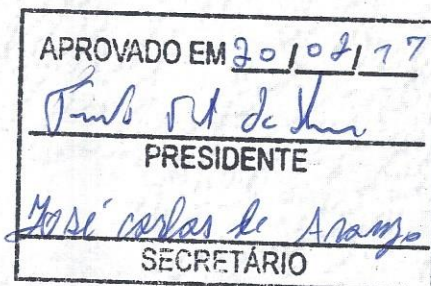 APROVADO EM 20/02/17
PRESIDENTE
José carlos de Araujo
SECRETÁRIO